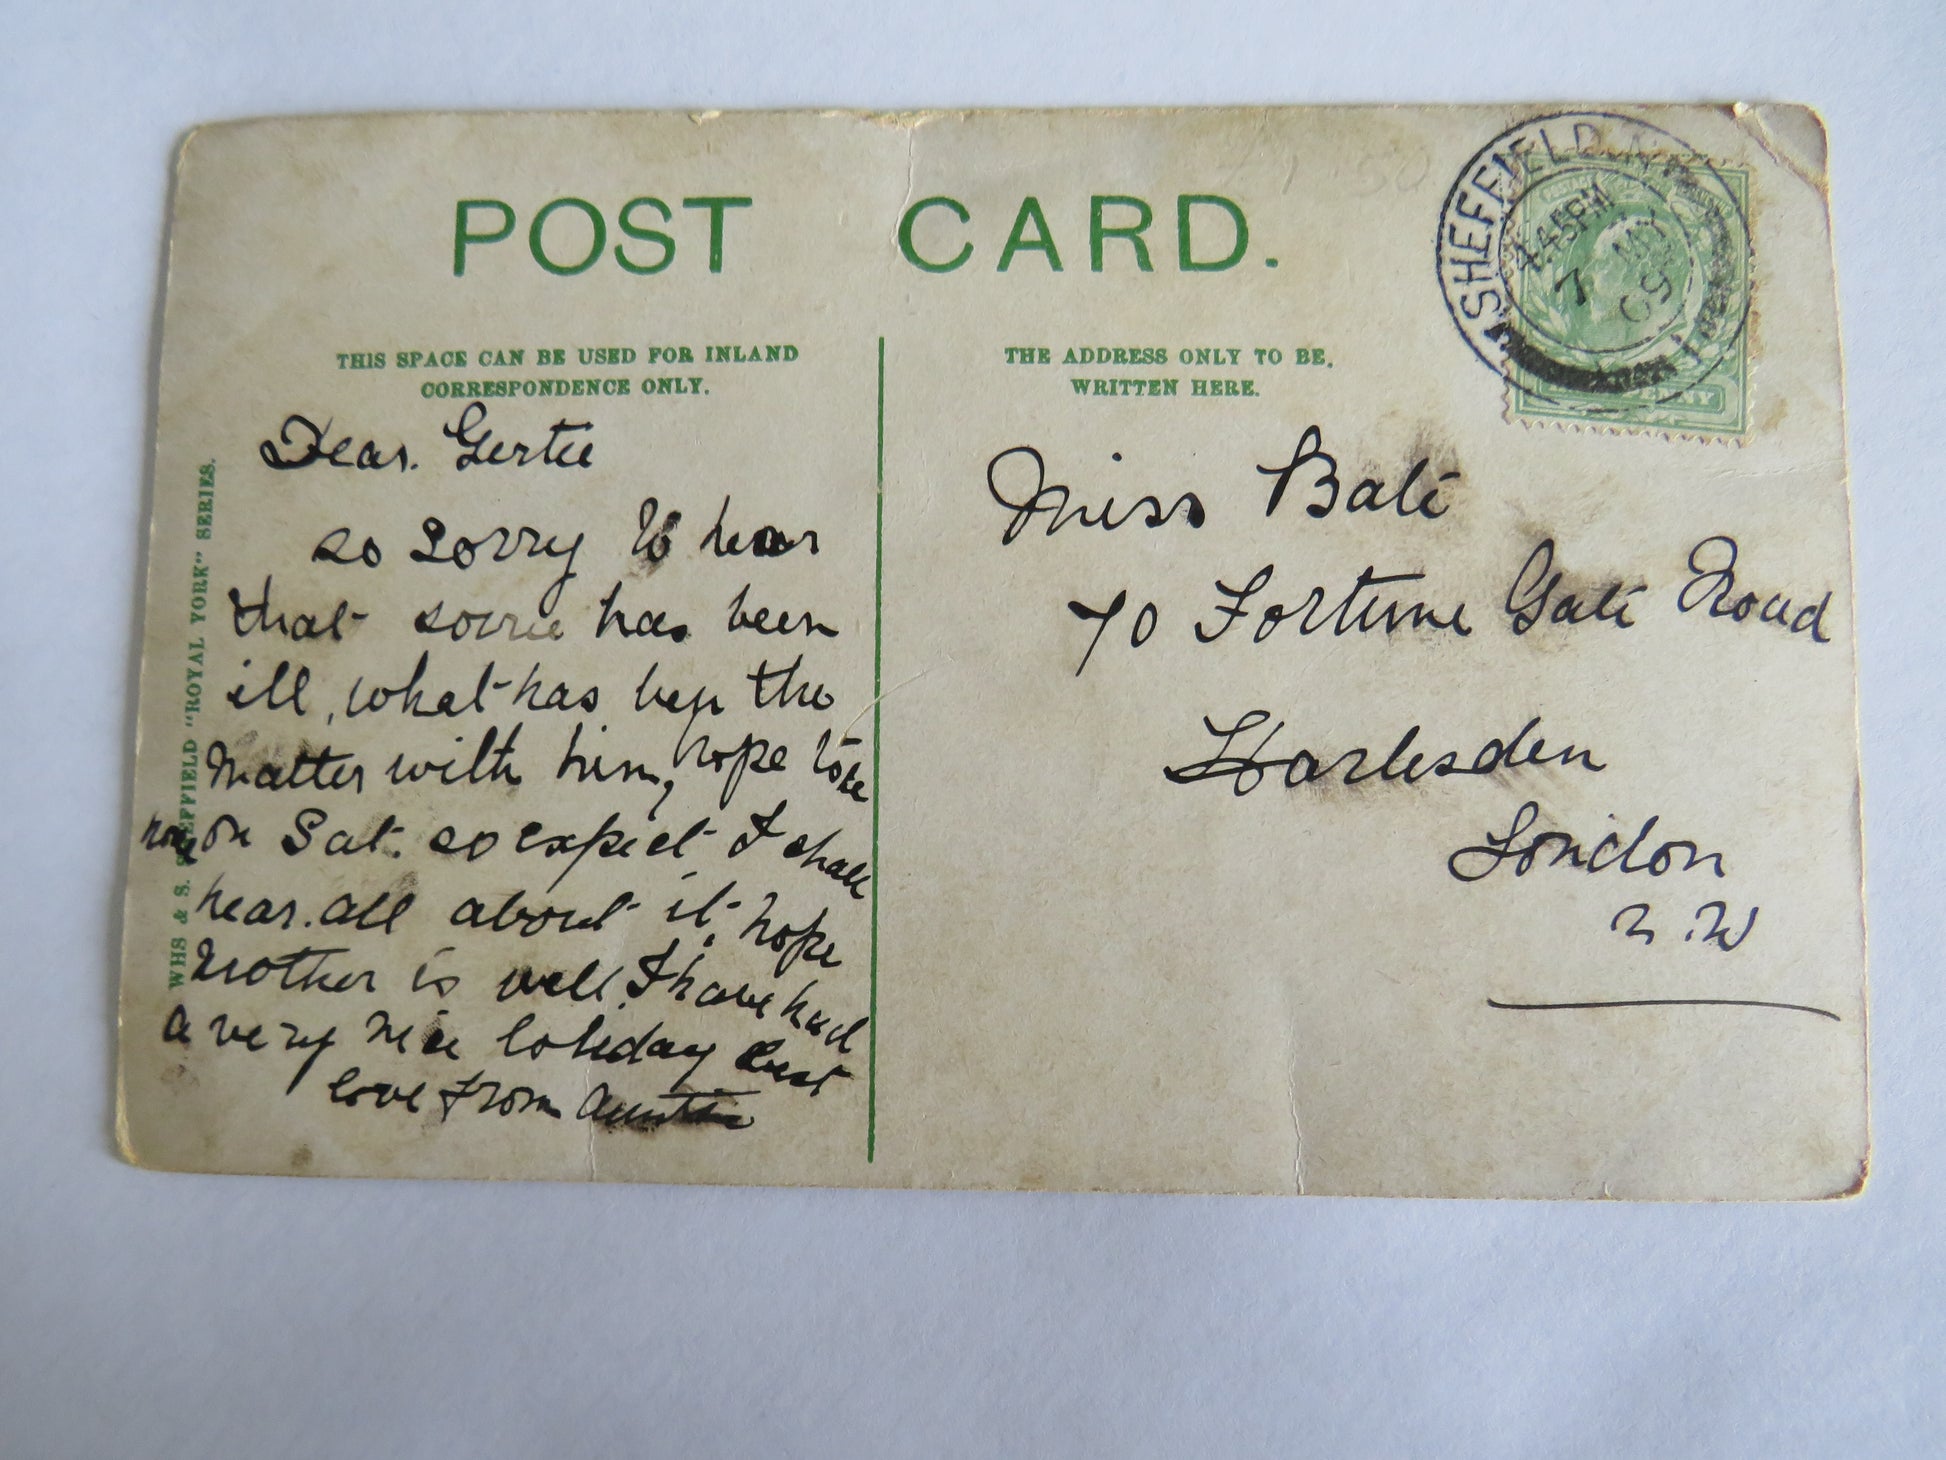 POST CARD.
THIS SPACE CAN BE USED FOR INLAND
CORRESPONDENCE ONLY.
Dear. Gertie
so sorry to hear
that has been
ill, what has been the
matter with him, hope to be
on Sat. so expect I shall
hear. all about it, hope
Mother is well. I have had
a very nice holiday best
love from Auntie
WHS & S. SHEFFIELD "ROYAL YORK" SERIES.
THE ADDRESS ONLY TO BE,
WRITTEN HERE.
Miss Bate
70 Fortune Gate Road
Harlesden
London
N.W
SHEFFIELD
4.45PM
7 MY
09
£1.50